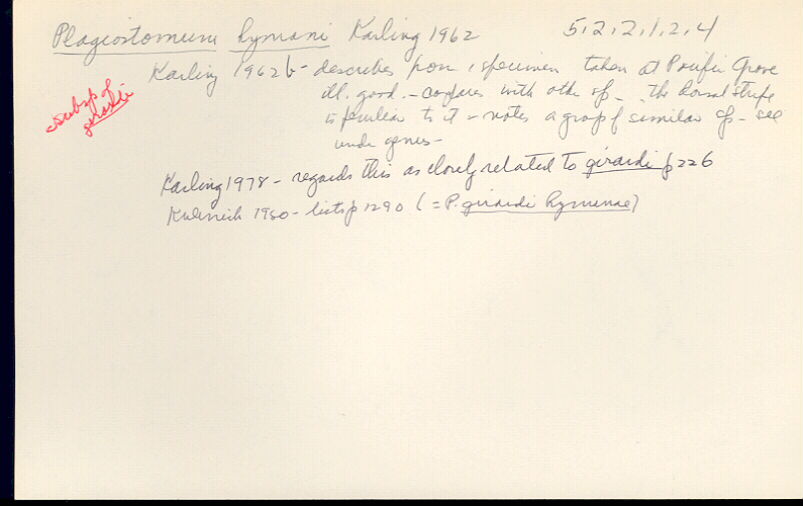 Plagiostomum hymani Karling 1962 5,2,2,1,2,4
Karling 1962b - describes from 1 specimen taken at Pacific Grove
ill. good. - compares with other sp - the dorsal stripe
is peculiar to it - notes a group of similar sp - see
under genus -
= subsp of
girardi
Karling 1978 - regards this as closely related to girardi p 226
1980 - lists p 1290 (= P. girardi hymanae)